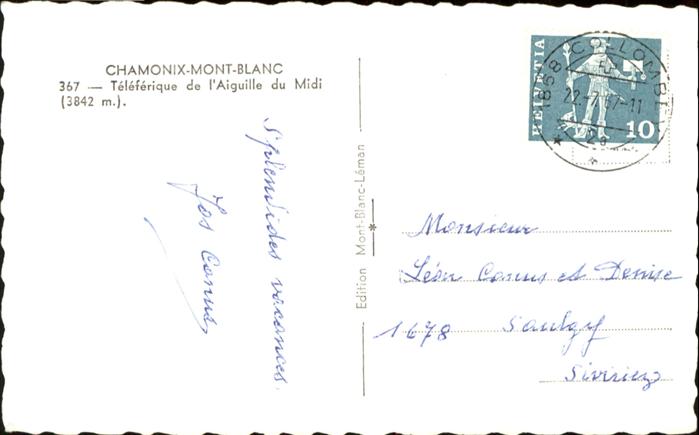 CHAMONIX-MONT-BLANC
367 — Téléférique de l'Aiguille du Midi
(3842 m.).
Splendides vacances.
Jos Canus
Edition Mont-Blanc-Léman
HELVETIA
10
1868 COLLOMBEY
22-7.67-11
Monsieur
Léon Canus et Denise
1678 Saulgy
Siviriez